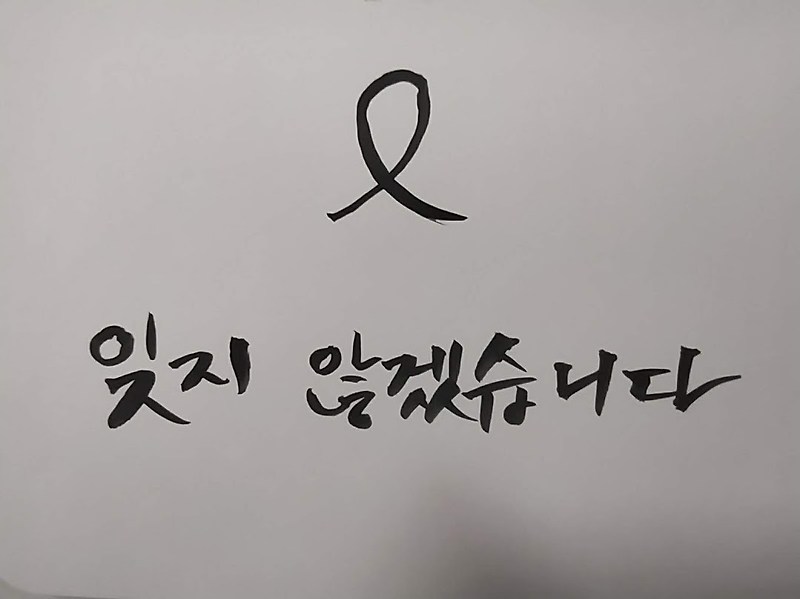 잊지 않겠습니다